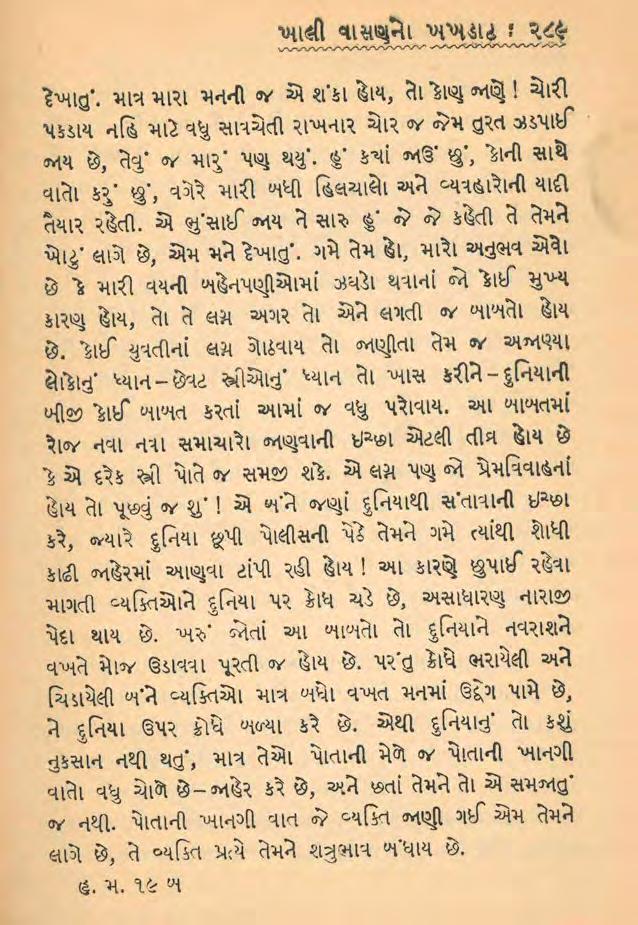 ખાલી વાસણનો ખખડાટ : ૨૮૯
દેખાતું. માત્ર મારા મનની જ એ શંકા હોય, તો કોણ જાણે ! ચોરી
પકડાય નહિ માટે વધુ સાવચેતી રાખનાર ચોર જ જેમ તુરત ઝડપાઈ
જાય છે, તેવું જ મારું પણ થયું. હું કયાં જાઉં છું, કોની સાથે
વાતો કરું છું, વગેરે મારી બધી હિલચાલો અને વ્યવહારોની યાદી
તૈયાર રહેતી. એ ભુંસાઈ જાય તે સારુ હું જે જે કહેતી તે તેમને
ખોટું લાગે છે, એમ મને દેખાતું. ગમે તેમ હો, મારો અનુભવ એવો
છે કે મારી વયની બહેનપણીઓમાં ઝઘડો થવાનાં જો કોઈ મુખ્ય
કારણ હોય, તો તે લગ્ન અગર તો એને લગતી જ બાબતો હોય
છે. કોઈ યુવતીનાં લગ્ન ગોઠવાય તો જાણીતા તેમ જ અજાણ્યા
લોકોનું ધ્યાન–છેવટ સ્ત્રીઓનું ધ્યાન તો ખાસ કરીને–દુનિયાની
બીજી કોઈ બાબત કરતાં આમાં જ વધુ પરોવાય. આ બાબતમાં
રોજ નવા નવા સમાચારો જાણવાની ઇચ્છા એટલી તીવ્ર હોય છે
કે એ દરેક સ્ત્રી પોતે જ સમજી શકે. એ લગ્ન પણ જો પ્રેમવિવાહનાં
હોય તો પૂછવું જ શું ! એ બંને જણાં દુનિયાથી સંતાવાની ઇચ્છા
કરે, જ્યારે દુનિયા છૂપી પોલીસની પેઠે તેમને ગમે ત્યાંથી શોધી
કાઢી જાહેરમાં આણુવા ટાંપી રહી હોય ! આ કારણે છુપાઈ રહેવા
માગતી વ્યક્તિઓને દુનિયા પર ક્રોધ ચડે છે, અસાધારણ નારાજી
પેદા થાય છે. ખરું જોતાં આ બાબતો તો દુનિયાને નવરાશને
વખતે મોજ ઉડાવવા પૂરતી જ હોય છે. પરંતુ ક્રોધે ભરાયેલી અને
ચિડાયેલી બંને વ્યક્તિઓ માત્ર બધો વખત મનમાં ઉદ્વેગ પામે છે,
ને દુનિયા ઉપર ક્રોધે બળ્યા કરે છે. એથી દુનિયાનું તો કશું
નુકસાન નથી થતું, માત્ર તેઓ પોતાની મેળે જ પોતાની ખાનગી
વાતો વધુ ચોળે છે–જાહેર કરે છે, અને છતાં તેમને તો એ સમજાતું
જ નથી. પોતાની ખાનગી વાત જે વ્યક્તિ જાણી ગઈ એમ તેમને
લાગે છે, તે વ્યક્તિ પ્રત્યે તેમને શત્રુભાવ બંધાય છે.
હ. મ. ૧૯ બ